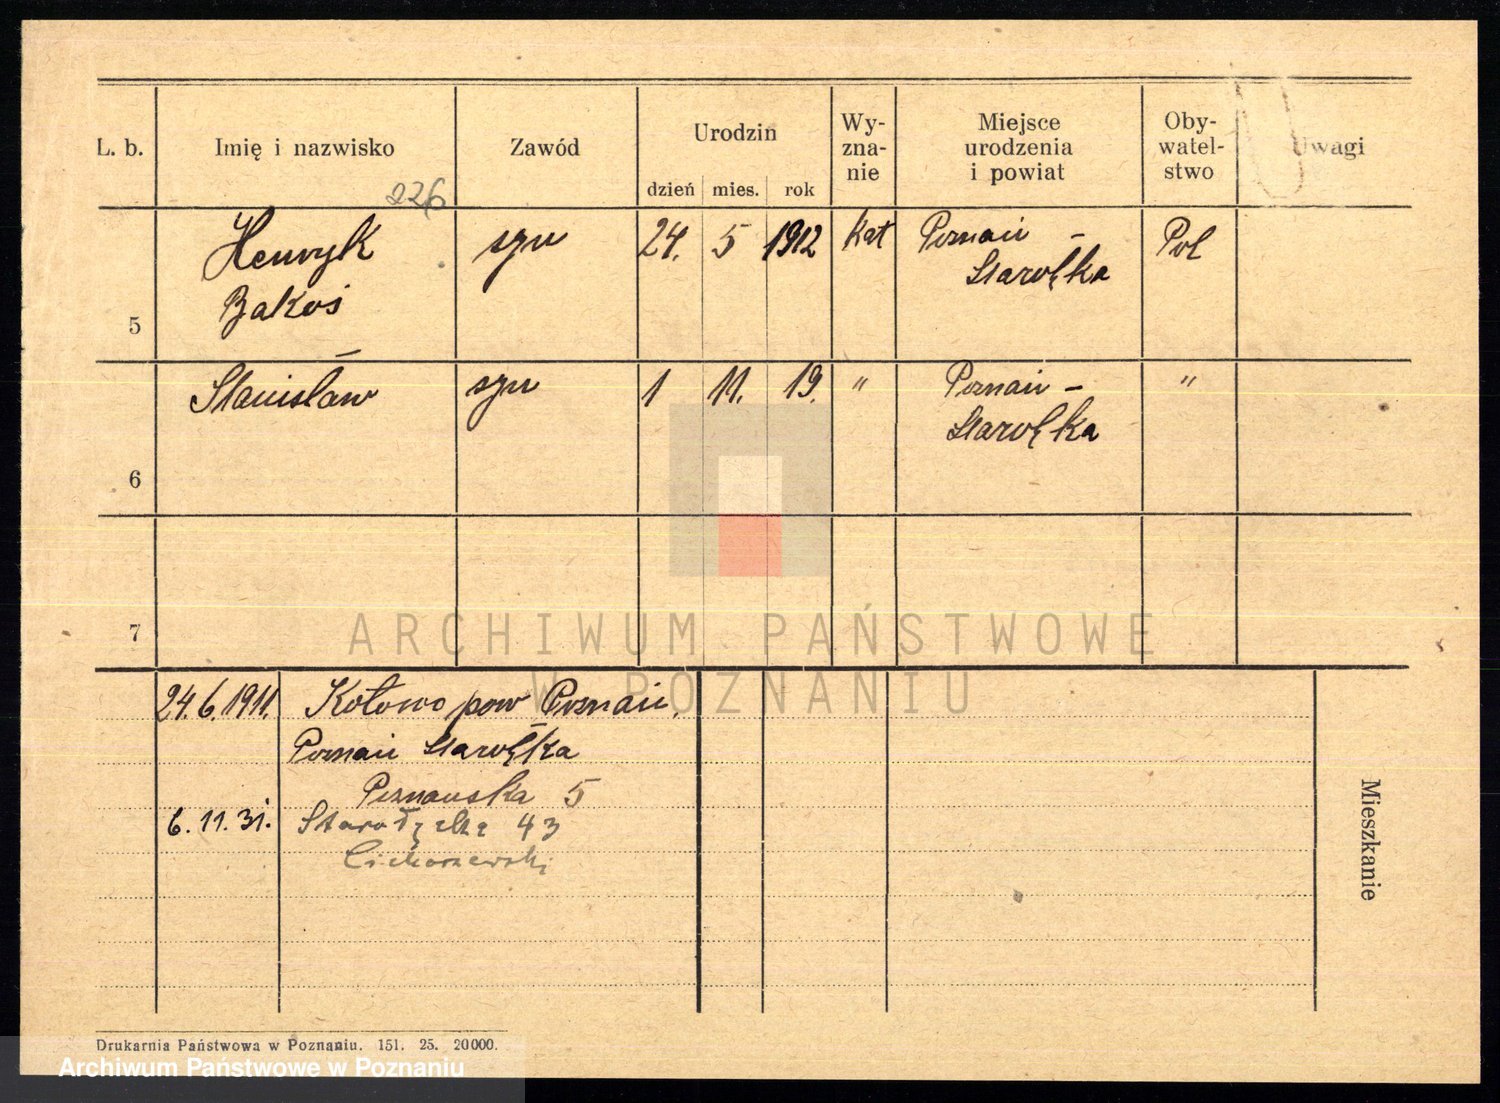 L. b. Imię i nazwisko Zawód Urodzin dzień mies. rok Wy-zna-nie Miejsce urodzenia i powiat Oby-watel-stwo Uwagi
226
5 Henryk syn 24. 5 1912 kat Poznań – Pol
Bakoś Starołęka
6 Stanisław syn 1 11. 19. " Poznań – "
Starołęka
7
24.6.1911. Kotowo pow Poznań.
Poznań Starołęka
Poznańska 5
6.11.31. Starołęcka 43
Cichoszewski
Mieszkanie
Drukarnia Państwowa w Poznaniu. 151. 25. 20000.
ARCHIWUM PAŃSTWOWE
W POZNANIU
Archiwum Państwowe w Poznaniu